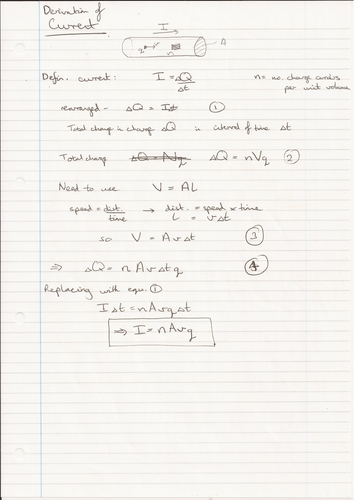 Derivation of
Current
I
A
n
Defin. current: I = ΔQ/Δt
n = no. charge carriers
per unit volume
rearranged - ΔQ = IΔt ①
Total change in charge ΔQ is interval of time Δt
Total charge ΔQ = NVq ΔQ = nVq ②
Need to use V = AL
speed = dist./time → dist. = speed × time
L = vΔt
so V = AvΔt ③
⇒ ΔQ = nAvΔtq ④
Replacing with equ. ①
IΔt = nAvqΔt
⇒ I = nAvq